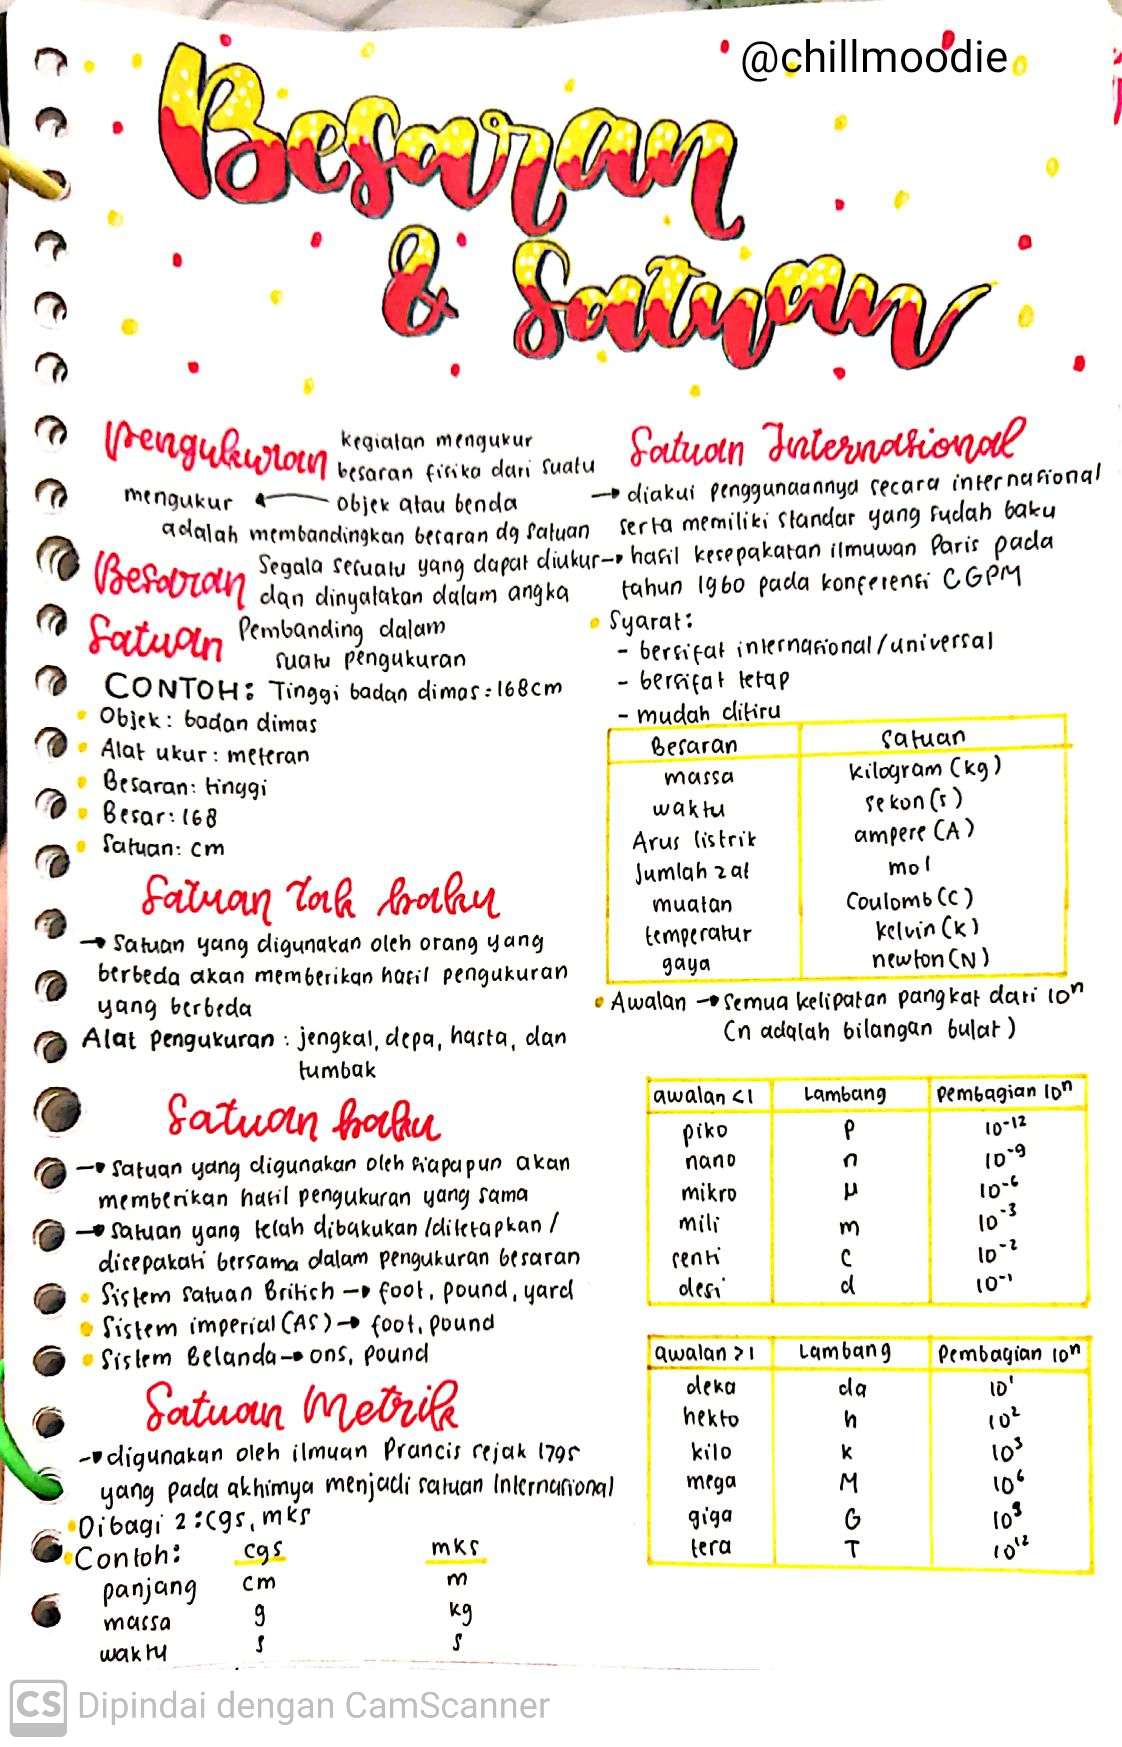 @chillmoodie
Besaran
& Satuan
Pengukuran kegiatan mengukur
besaran fisika dari suatu
mengukur ← objek atau benda
adalah membandingkan besaran dg satuan
Besaran Segala sesuatu yang dapat diukur
dan dinyatakan dalam angka
Satuan Pembanding dalam
suatu pengukuran
CONTOH: Tinggi badan dimas: 168cm
• Objek: badan dimas
• Alat ukur: meteran
• Besaran: tinggi
• Besar: 168
• Satuan: cm
Satuan tak baku
→ Satuan yang digunakan oleh orang yang
berbeda akan memberikan hasil pengukuran
yang berbeda
Alat Pengukuran : jengkal, depa, hasta, dan
tumbak
Satuan baku
→ Satuan yang digunakan oleh siapapun akan
memberikan hasil pengukuran yang sama
→ Satuan yang telah dibakukan/ditetapkan/
disepakati bersama dalam pengukuran besaran
• Sistem satuan British → foot, pound, yard
• Sistem imperial (AS) → foot, pound
• Sistem Belanda → ons, pound
Satuan Metrik
→ digunakan oleh ilmuan Prancis sejak 1795
yang pada akhirnya menjadi satuan Internasional
• Dibagi 2: cgs, mks
• Contoh: cgs mks
panjang cm m
massa g kg
waktu s s
Satuan Internasional
→ diakui penggunaannya secara internasional
serta memiliki standar yang sudah baku
→ hasil kesepakatan ilmuwan Paris pada
tahun 1960 pada konferensi CGPM
• Syarat:
- bersifat internasional/universal
- bersifat tetap
- mudah ditiru
Besaran Satuan
massa kilogram (kg)
waktu sekon (s)
Arus listrik ampere (A)
Jumlah zat mol
muatan Coulomb (C)
temperatur kelvin (k)
gaya newton (N)
• Awalan → Semua kelipatan pangkat dari 10ⁿ
(n adalah bilangan bulat)
awalan <1 Lambang Pembagian 10ⁿ
piko p 10⁻¹²
nano n 10⁻⁹
mikro μ 10⁻⁶
mili m 10⁻³
senti c 10⁻²
desi d 10⁻¹
awalan >1 Lambang Pembagian 10ⁿ
deka da 10¹
hekto h 10²
kilo k 10³
mega M 10⁶
giga G 10⁹
tera T 10¹²
CS Dipindai dengan CamScanner